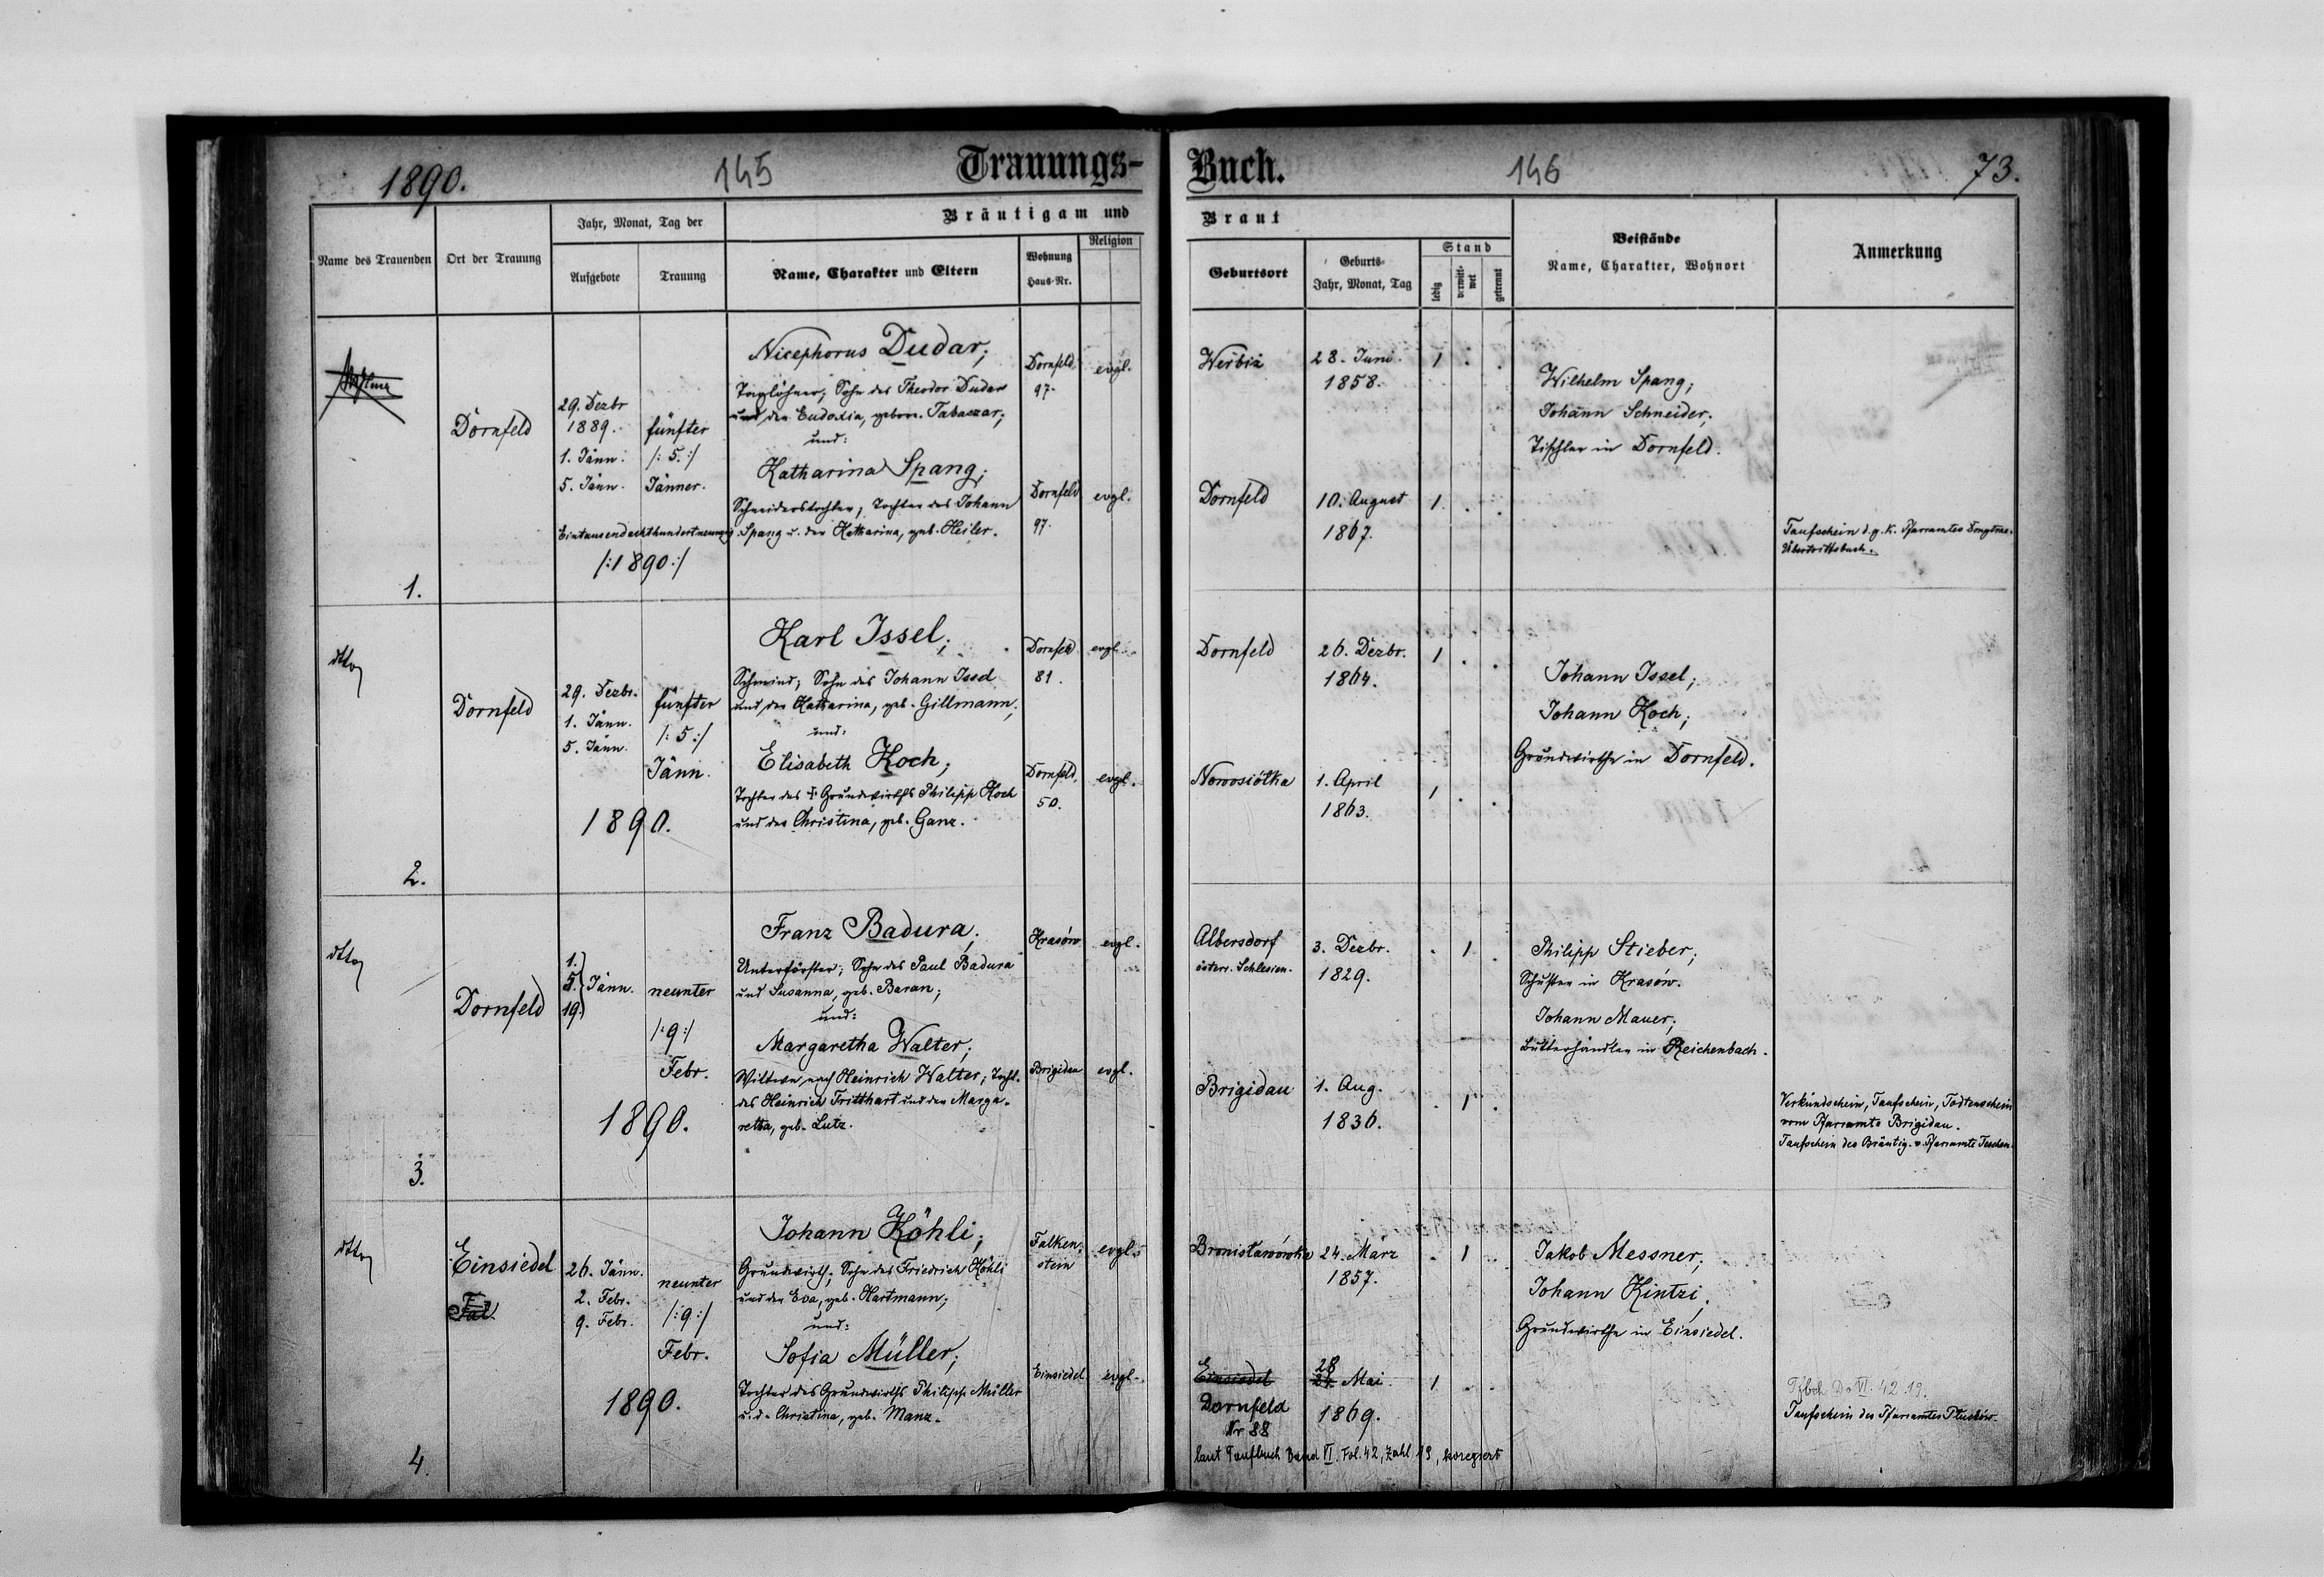 1890.
145
Trauungs-
Buch.
146
73.
Name des Trauenden
Ort der Trauung
Jahr, Monat, Tag der
Aufgebote
Trauung
Bräutigam und
Name, Charakter und Eltern
Wohnung
Haus-Nr.
Religion
Braut
Geburtsort
Geburts-
Jahr, Monat, Tag
Stand
ledig
verwitt-
wet
getrennt
Beistände
Name, Charakter, Wohnort
Anmerkung
1.
Dornfeld
29. Dezbr
1889.
1. Jänn.
5. Jänn.
fünfter
/: 5. :/
Jänner.
Eintausendachthundertneunzig
/: 1890 :/
Nicephorus Dudar;
Taglöhner; Sohn des Theodor Dudar
und der Eudoxia, gebor. Tabaszar;
und:
Katharina Spang;
Schneiderstochter; Tochter des Johann
Spang u. der Katharina, geb. Heiler.
Dornfeld
97.
evgl.
Dornfeld
97.
evgl.
Werbiż
28. Juni
1858.
1 . .
Dornfeld
10. August
1867.
1. . .
Wilhelm Spang;
Johann Schneider;
Tischler in Dornfeld.
Taufschein d. g. k. Pfarramtes
Übertrittsbuch.
2.
dtto
Dornfeld
29. Dezbr.
1. Jänn.
5. Jänn.
fünfter
/: 5 :/
Jänn.
1890.
Karl Issel;
Schmied; Sohn des Johann Issel
und der Katharina, geb. Gillmann;
und:
Elisabeth Koch;
Tochter des † Grundwirths Philipp Koch
und der Christina, geb. Ganz.
Dornfeld
81.
evgl.
Dornfeld,
50.
evgl.
Dornfeld
26. Dezbr.
1864.
1 . .
Nowosiółka
1. April
1863.
1 . .
Johann Issel;
Johann Koch;
Grundwirthe in Dornfeld.
3.
dtto
Dornfeld
1.
5. Jänn.
19.
neunter
/: 9 :/
Febr.
1890.
Franz Badura;
Unterförster; Sohn des Paul Badura
und Susanna, geb. Baran;
und:
Margaretha Walter;
Wittwe nach Heinrich Walter; Tocht.
des Heinrich Fritthart und der Marga-
retha, geb. Lutz.
Krasów
evgl.
Brigidau
evgl.
Albersdorf
österr. Schlesien.
3. Dezbr.
1829.
. 1 .
Brigidau
1. Aug.
1836.
. 1 .
Philipp Stieber;
Schuster in Krasów.
Johann Mauer;
Butterhändler in Reichenbach.
Verkündschein, Taufschein, Todtenschein
vom Pfarramte Brigidau.
Taufschein des Bräutig. v. Pfarramte Teschen.
4.
dtto
Einsiedel
Fal
26. Jänn.
2. Febr.
9. Febr.
neunter
/: 9 :/
Febr.
1890.
Johann Köhli;
Grundwirth; Sohn des Friedrich Köhli
und der Eva, geb. Hartmann;
und:
Sofia Müller;
Tochter des Grundwirths Philipp Müller
u. d. Christina, geb. Manz.
Falken-
stein
evgl.
Einsiedel
evgl.
Bronisławówka
24. März
1857.
. 1 .
Einsiedel
Dornfeld
Nr 88
28
Mai
1869.
1 . .
laut Taufbuch Band VI. Fol. 42, Zahl 19, koregiert
Jakob Messner;
Johann Kintzi;
Grundwirthe in Einsiedel.
Tfbch Do VI. 42. 19.
Taufschein des Pfarramtes